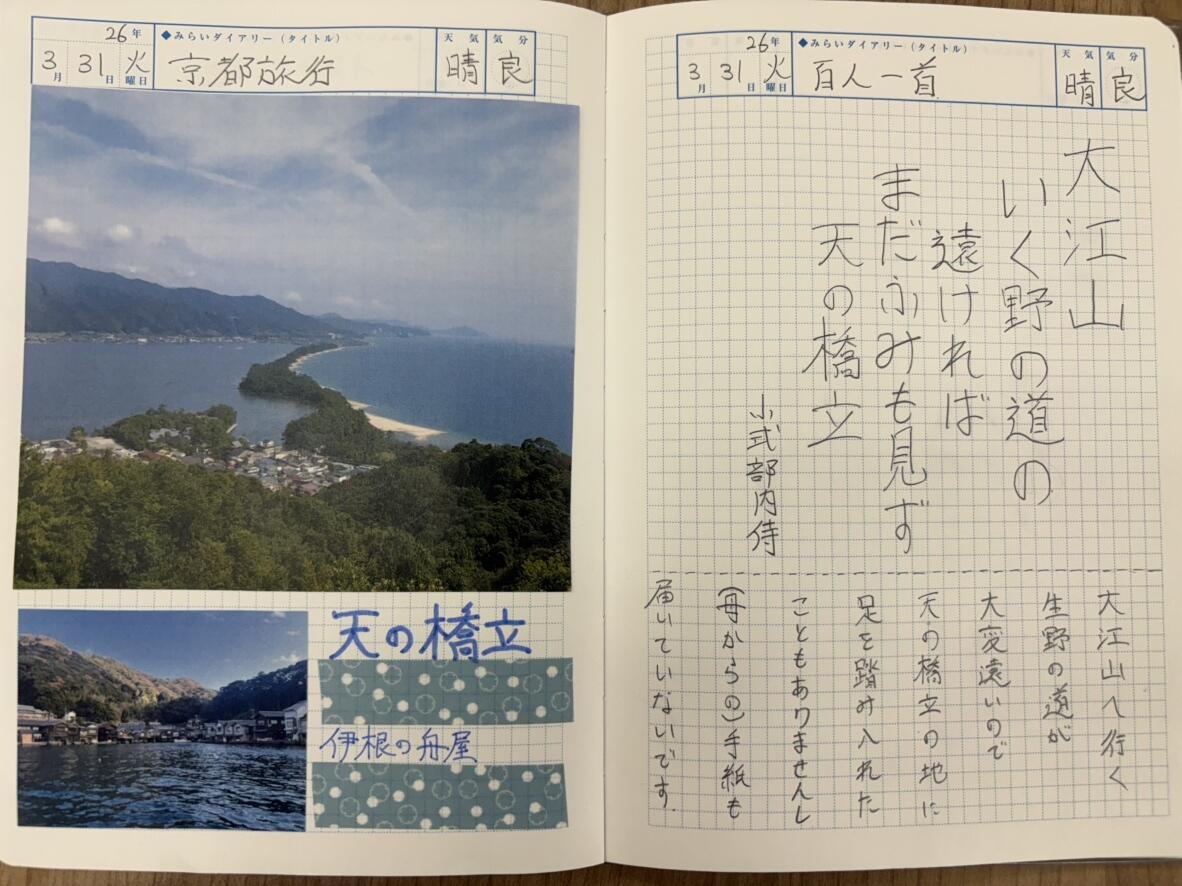 26年
◆みらいダイアリー（タイトル）
天気
気分
3月31日火曜日
京都旅行
晴
良
天の橋立
伊根の舟屋
26年
◆みらいダイアリー（タイトル）
天気
気分
3月31日火曜日
百人一首
晴
良
大江山
いく野の道の
遠ければ
まだふみも見ず
天の橋立
小式部内侍
大江山へ行く
生野の道が
大変遠いので
天の橋立の地に
足を踏み入れた
こともありませんし
(母からの)手紙も
届いていないです.